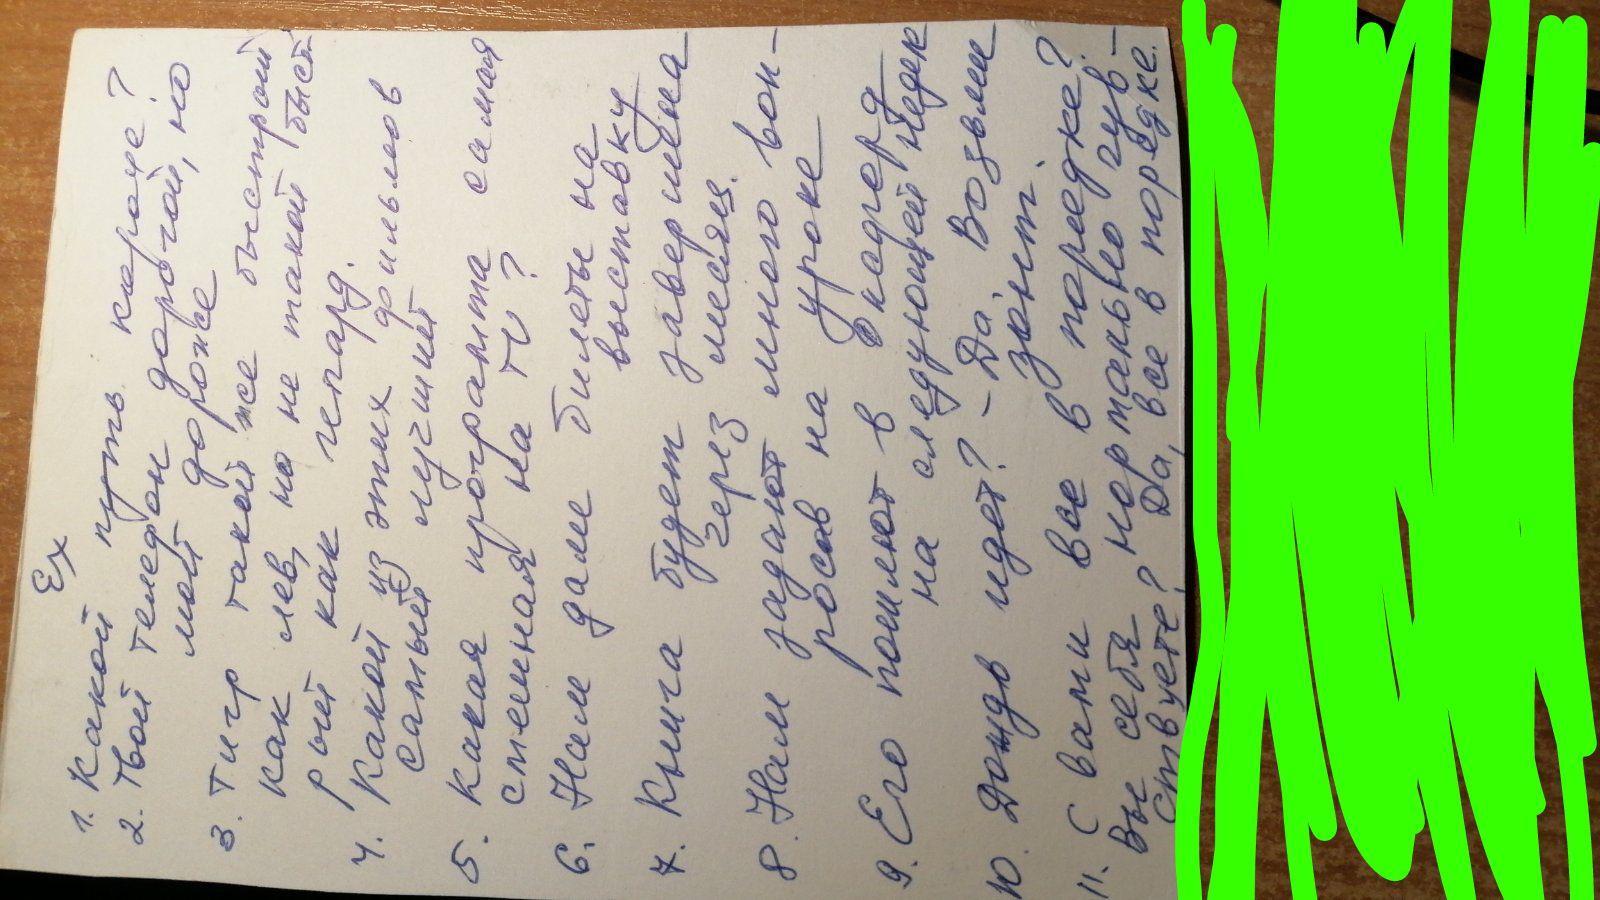 Ex
1. Какой путь короче?
2. Твой телефон дорогой, но
мой дороже
3. Тигр такой же быстрый
как лев, но не такой быст
рый как гепард.
4. Какой из этих фильмов
самый лучший
5. Какая программа самая
смешная на TV?
6. Нам дали билеты на
выставку
7. Книга будет завершена
через месяц.
8. Нам задают много воп-
росов на уроке
9. Его пошлют в
на следующей неделе
10. Дождь идет? - Да. Возьми
зонт.
11. С вами все в порядке?
Вы себя нормально чув-
ствуете? Да, все в порядке.